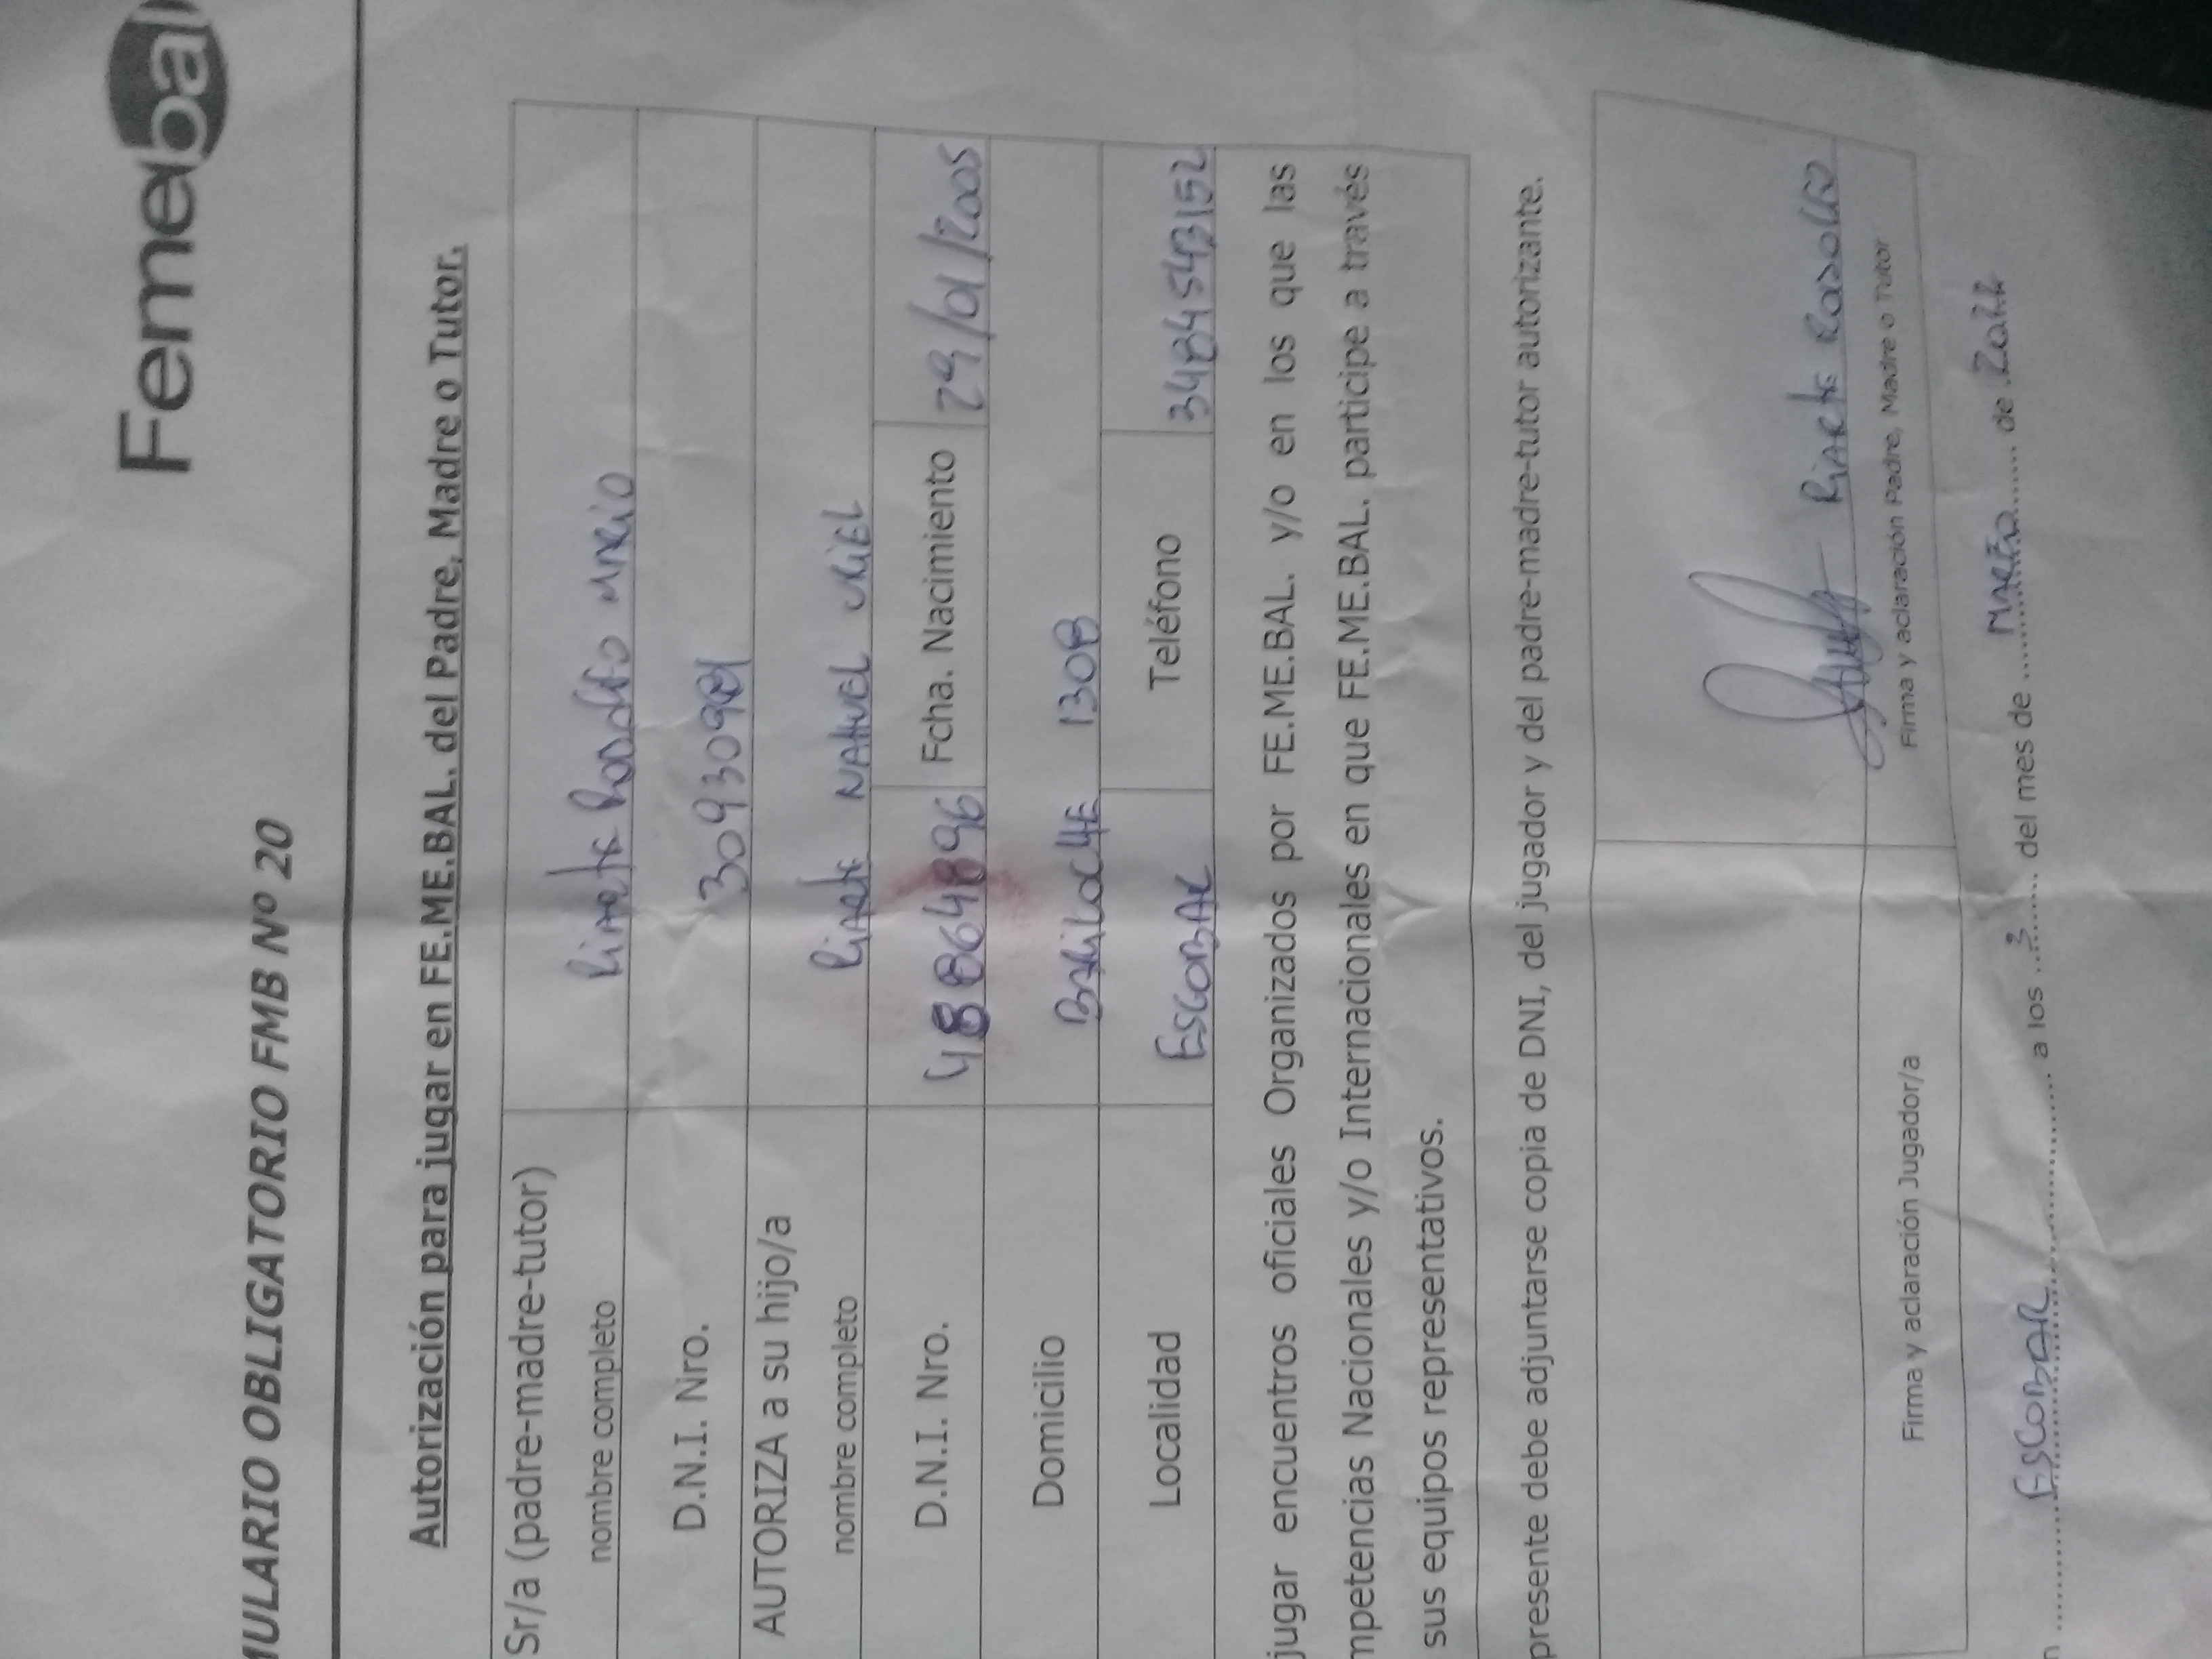 Femebal
MULARIO OBLIGATORIO FMB Nº 20
Autorización para jugar en FE.ME.BAL. del Padre, Madre o Tutor.
Sr/a (padre-madre-tutor)
nombre completo
Riarte Rodolfo Mario
D.N.I. Nro.
AUTORIZA a su hijo/a
nombre completo
Riarte NAHUEL URIEL
D.N.I. Nro. 48864896 Fcha. Nacimiento 29/01/2005
Domicilio BARILOCHE 1308
Localidad ESCOBAR Teléfono 3484543152
jugar encuentros oficiales Organizados por FE.ME.BAL. y/o en los que las
mpetencias Nacionales y/o Internacionales en que FE.ME.BAL. participe a través
sus equipos representativos.
presente debe adjuntarse copia de DNI, del jugador y del padre-madre-tutor autorizante.
Riarte Rodolfo
Firma y aclaración Jugador/a Firma y aclaración Padre, Madre o Tutor
n ........ ESCOBAR ........ a los ..3.. del mes de ... MARZO ... de .2022